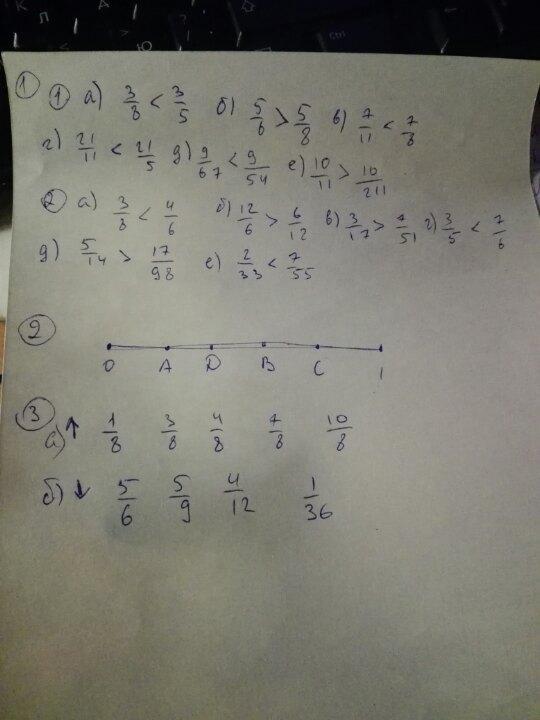 ① ① а) 3/8 < 3/5 б) 5/6 > 5/8 в) 7/11 < 7/8
г) 21/11 < 21/5 д) 9/67 < 9/54 е) 10/11 > 10/211
② а) 3/8 < 4/6 б) 12/6 > 6/12 в) 3/17 > 7/51 г) 3/5 < 7/6
д) 5/14 > 17/98 е) 2/33 < 7/55
②
0 A D B C 1
③
а) ↑ 1/8 3/8 4/8 7/8 10/8
б) ↓ 5/6 5/9 4/12 1/36